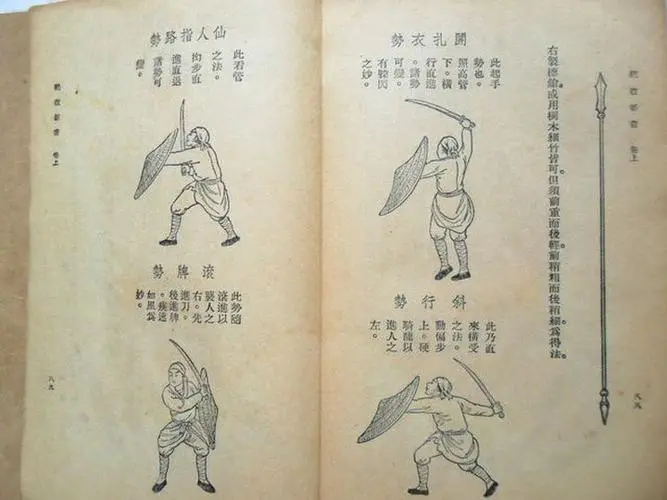 紀效新書 卷上
右製標鎗或用稠木細竹皆可。但須前重而後輕。前稍粗而後稍細爲得法。
開扎衣勢
此起手
勢也。
照高管
下。橫
行直進
。諸勢
可變。
有躲閃
之妙。
斜行勢
此乃直
來橫受
之法。
動偏步
上。硬
騎龍以
進人之
左。
八八
仙人指路勢
此看管
之法。
拗步直
進直退
。諸勢可
變。
滚牌勢
此勢隨
滾進以
襲人之
右。先
進刀。
後進牌
。疾速
如風爲
妙。
紀效新書 卷上
八九